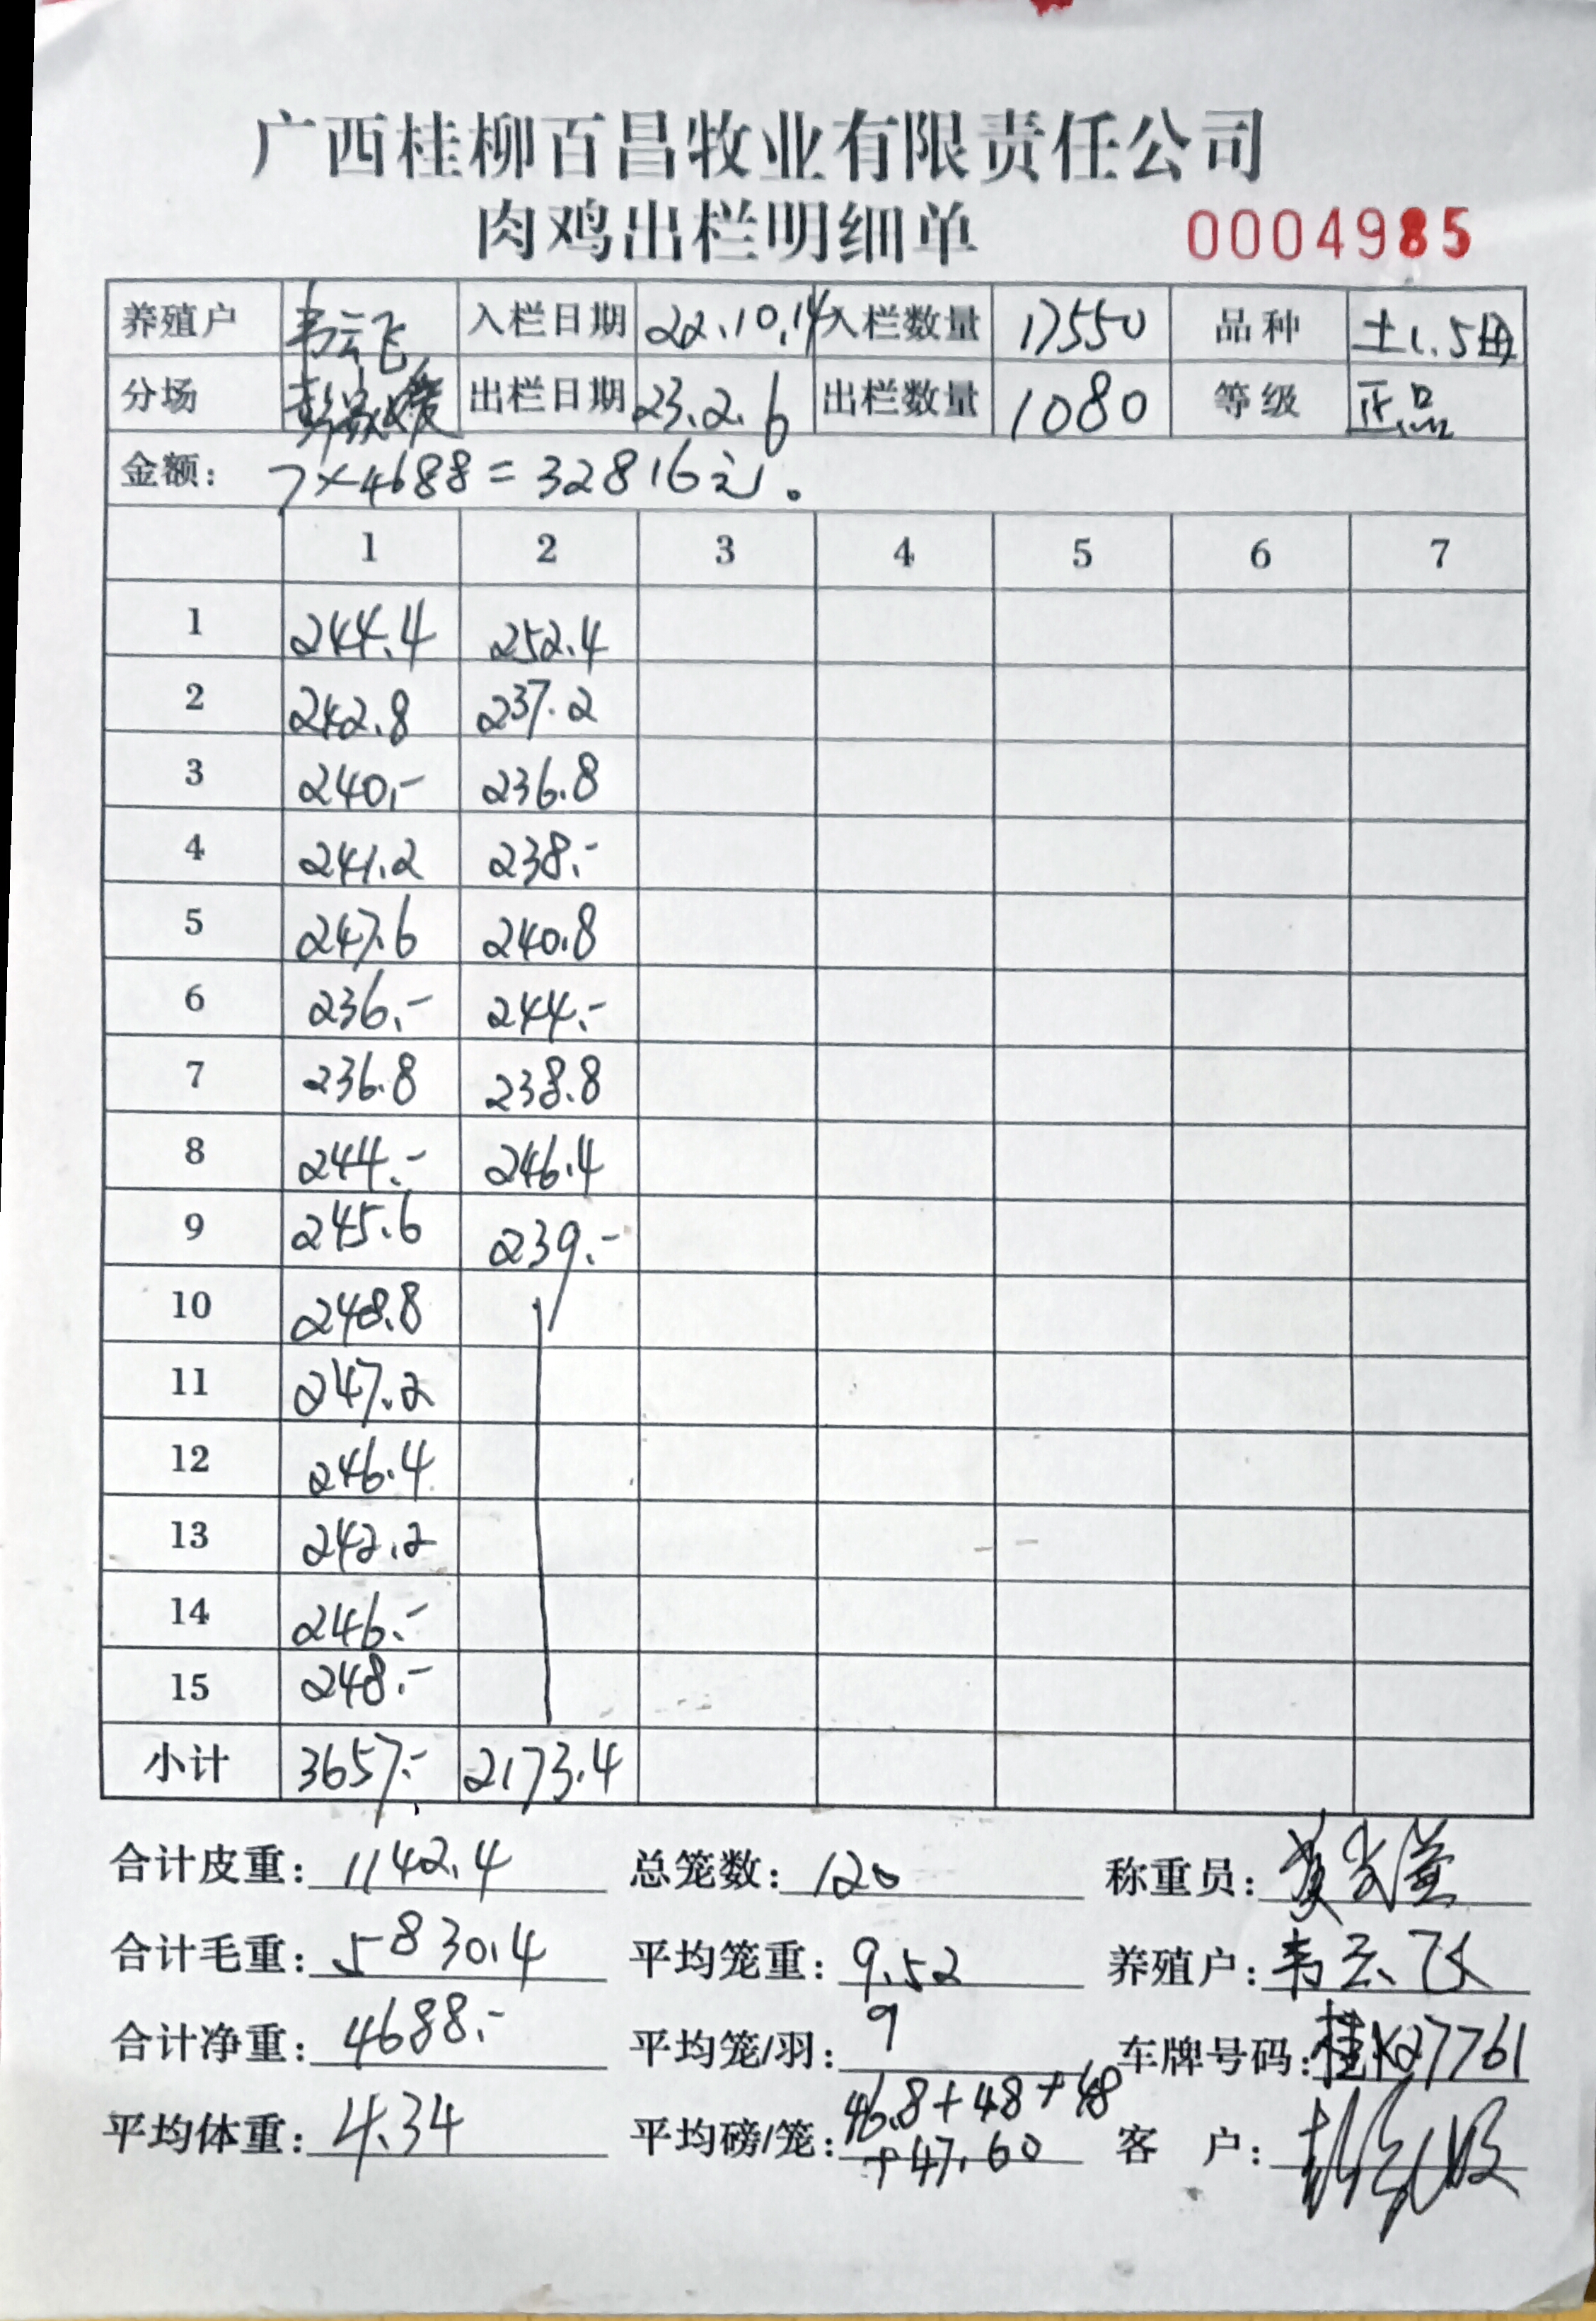 广西桂柳百昌牧业有限责任公司
肉鸡出栏明细单 0004985
养殖户 韦云飞 入栏日期 22.10.14 入栏数量 17550 品种 土1.5母
分场 出栏日期 23.2.6 出栏数量 1080 等级 正品
金额: 7×4688=32816元。
1 2 3 4 5 6 7
1 244.4 252.4
2 242.8 237.2
3 240.- 236.8
4 241.2 238.-
5 247.6 240.8
6 236.- 244.-
7 236.8 238.8
8 244.- 246.4
9 245.6 239.-
10 248.8
11 247.2
12 246.4
13 242.2
14 246.-
15 248.-
小计 3657.- 2173.4
合计皮重: 1142.4 总笼数: 120 称重员:
合计毛重: 5830.4 平均笼重: 9.52 养殖户: 韦云飞
合计净重: 4688.- 平均笼/羽: 9 车牌号码: 桂K27761
平均体重: 4.34 平均磅/笼: 46.8+48+48 客 户:
+47.60